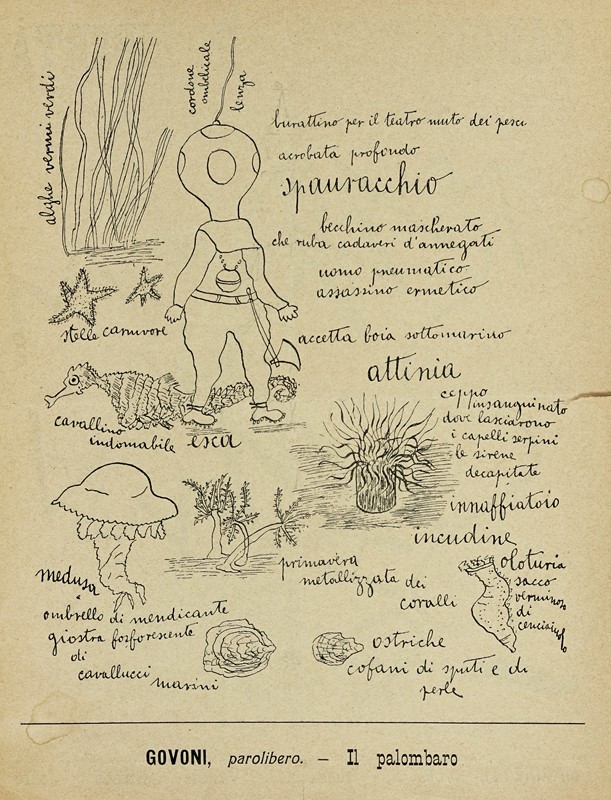 alghe vermi verdi
cordone
ombelicale
lenza
burattino per il teatro muto dei pesci
acrobata profondo
spauracchio
becchino mascherato
che ruba cadaveri d'annegati
uomo pneumatico
assassino ermetico
stelle carnivore
accetta boia sottomarino
attinia
ceppo
insanguinato
dove lasciarono
i capelli serpini
le sirene
decapitate
cavallino
indomabile
esca
innaffiatoio
incudine
primavera
metallizzata dei
coralli
oloturia
sacco
verminoso
di
medusa
ombrello di mendicante
giostra fosforescente
di
cavallucci
marini
ostriche
cofani di sputi e di
perle
GOVONI, parolibero. – Il palombaro